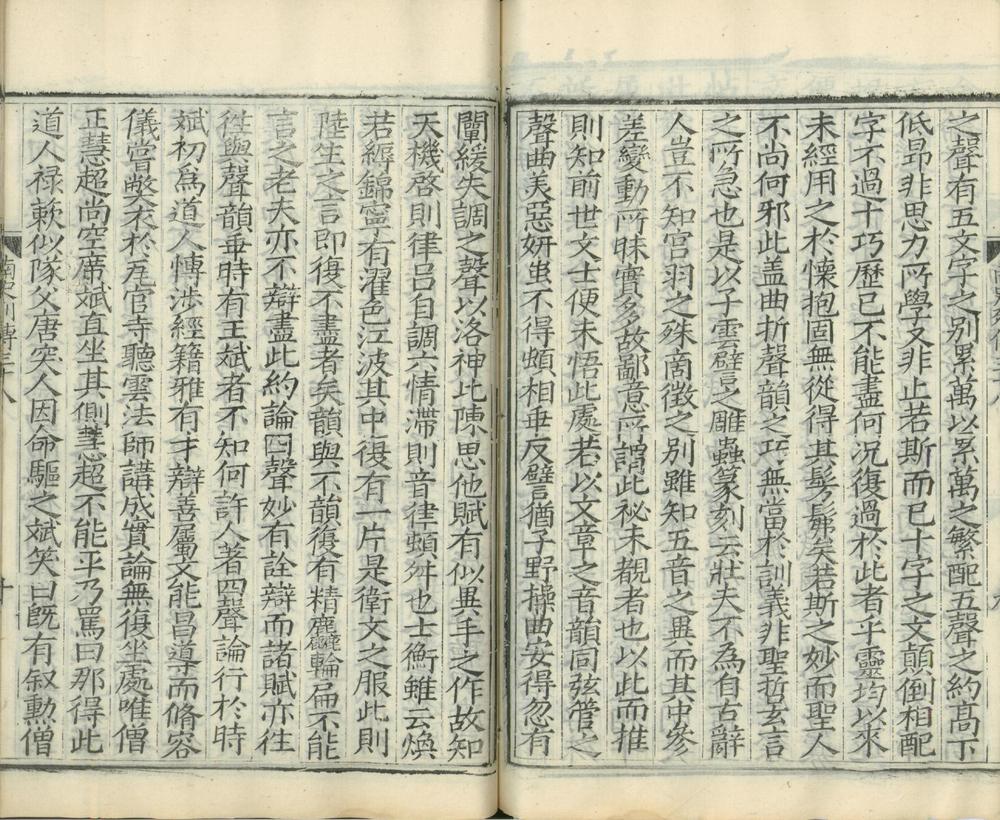 之聲有五文字之別累萬以累萬之繁配五聲之約髙下
低昂非思力所學又非止若斯而已十字之文顛倒相配
字不過十巧歷已不能盡何況復過於此者乎靈均以來
未經用之於懷抱固無從得其髣髴矣若斯之妙而聖人
不尚何邪此盖曲折聲韻之巧無當於訓義非聖哲玄言
之所急也是以子雲譬之雕蟲篆刻云壯夫不為自古辭
人豈不知宫羽之殊啇徵之別雖知五音之異而其中參
差變動所昧實多故鄙意所謂此祕未覩者也以此而推
則知前世文士便未悟此處若以文章之音韻同弦管之
聲曲美惡妍蚩不得頗相乖反譬猶子野操曲安得忽有
闡緩失調之聲以洛神比陳思他賦有似異手之作故知
天機啓則律吕自調六情滯則音律頓舛也士衡雖云煥
若縟錦寧有濯色江波其中復有一片是衛文之服此則
陸生之言即復不盡者矣韻與不韻復有精麤輪扁不能
言之老夫亦不辯盡此約論四聲妙有詮辯而諸賦亦徃
徃與聲韻乖時有王斌者不知何許人著四聲論行於時
斌初爲道人慱渉經籍雅有才辯善屬文能昌導而脩容
儀嘗獘衣於瓦官寺聽雲法師講成實論無復坐處唯僧
正慧超尚空席斌直坐其側慧超不能乎乃罵曰那得此
道人禄蔌似隊父唐突人因命驅之斌笑曰旣有叙勲僧
南史列傳三十八
十